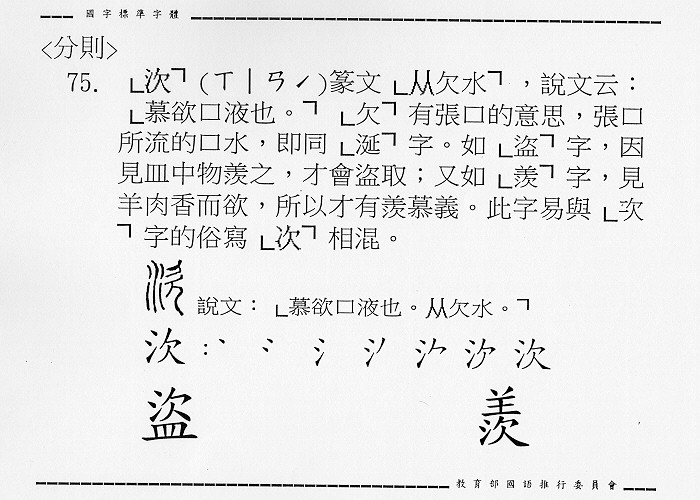 國字標準字體
<分則>
75. ﹂㳄﹁(ㄒㄧㄢˊ)篆文﹂从欠水﹁，說文云：
﹂慕欲口液也。﹁ ﹂欠﹁有張口的意思，張口
所流的口水，即同﹂涎﹁字。如﹂盜﹁字，因
見皿中物羨之，才會盜取；又如﹂羨﹁字，見
羊肉香而欲，所以才有羨慕義。此字易與﹂次
﹁字的俗寫﹂㳄﹁相混。
㳄 說文：﹂慕欲口液也。从欠水。﹁
㳄：
盜 羨
教育部國語推行委員會